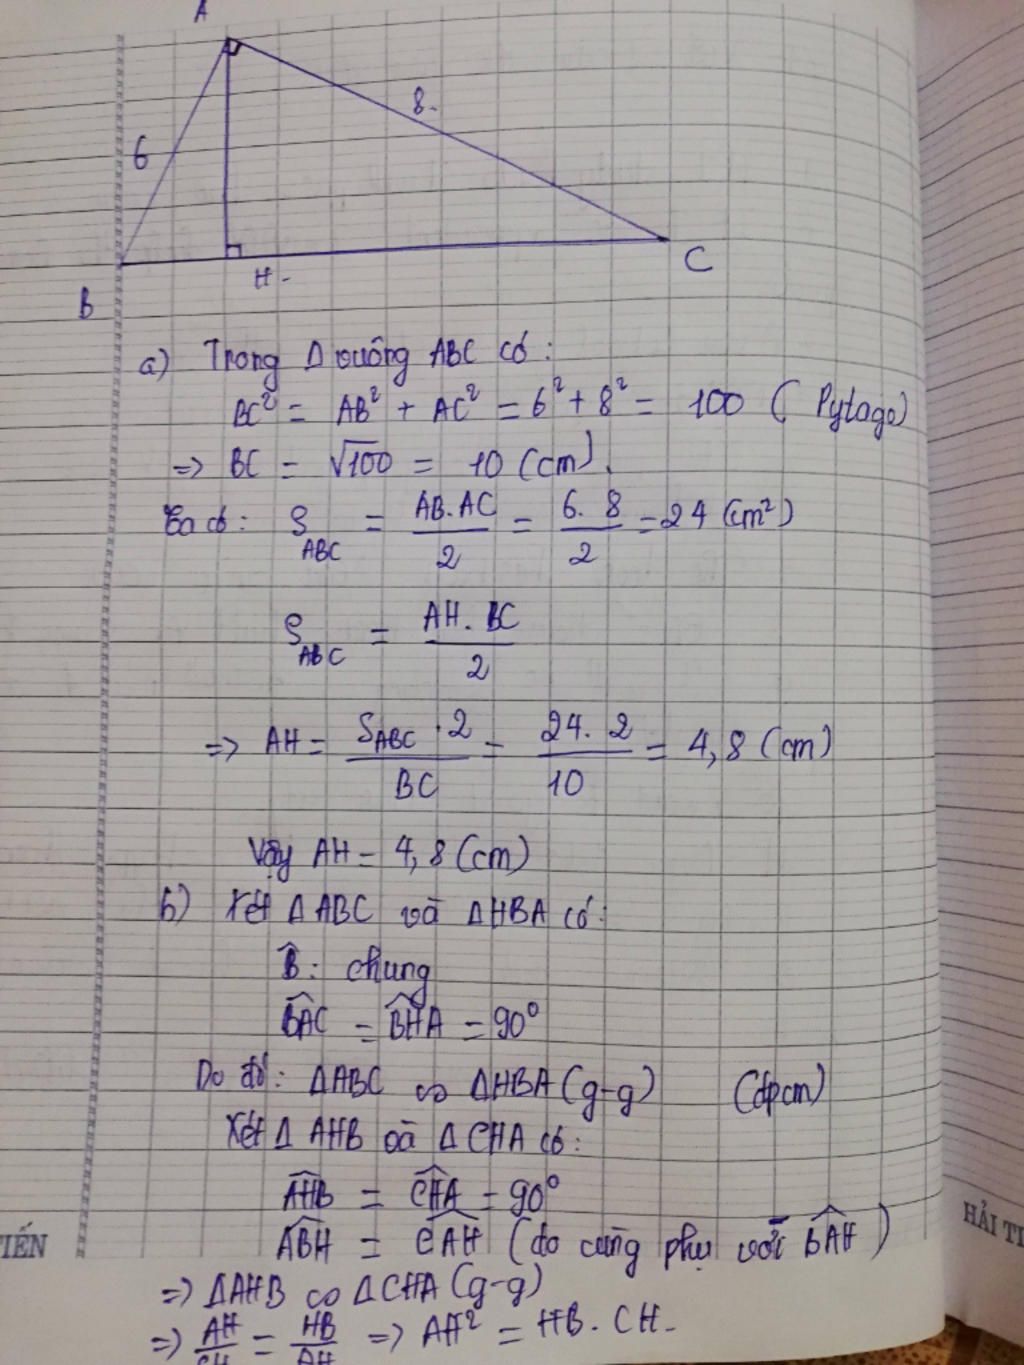 A
6
8.
B
H-
C
a) Trong Δ vuông ABC có:
BC² = AB² + AC² = 6² + 8² = 100 ( Pytago)
=> BC = √100 = 10 (cm).
Ta có: S_ABC = AB.AC/2 = 6.8/2 = 24 (cm²)
S_ABC = AH.BC/2
=> AH = S_ABC.2/BC = 24.2/10 = 4,8 (cm)
Vậy AH = 4,8 (cm)
b) Xét ΔABC và ΔHBA có:
B̂: chung
BAC = BHA = 90°
Do đó: ΔABC ∽ ΔHBA (g-g) (đpcm)
Xét Δ AHB và ΔCHA có:
AHB = CHA = 90°
ABH = CAH (do cùng phụ với BAH)
=> ΔAHB ∽ ΔCHA (g-g)
=> AH/CH = HB/AH => AH² = HB.CH.
TIẾN
HẢI TI